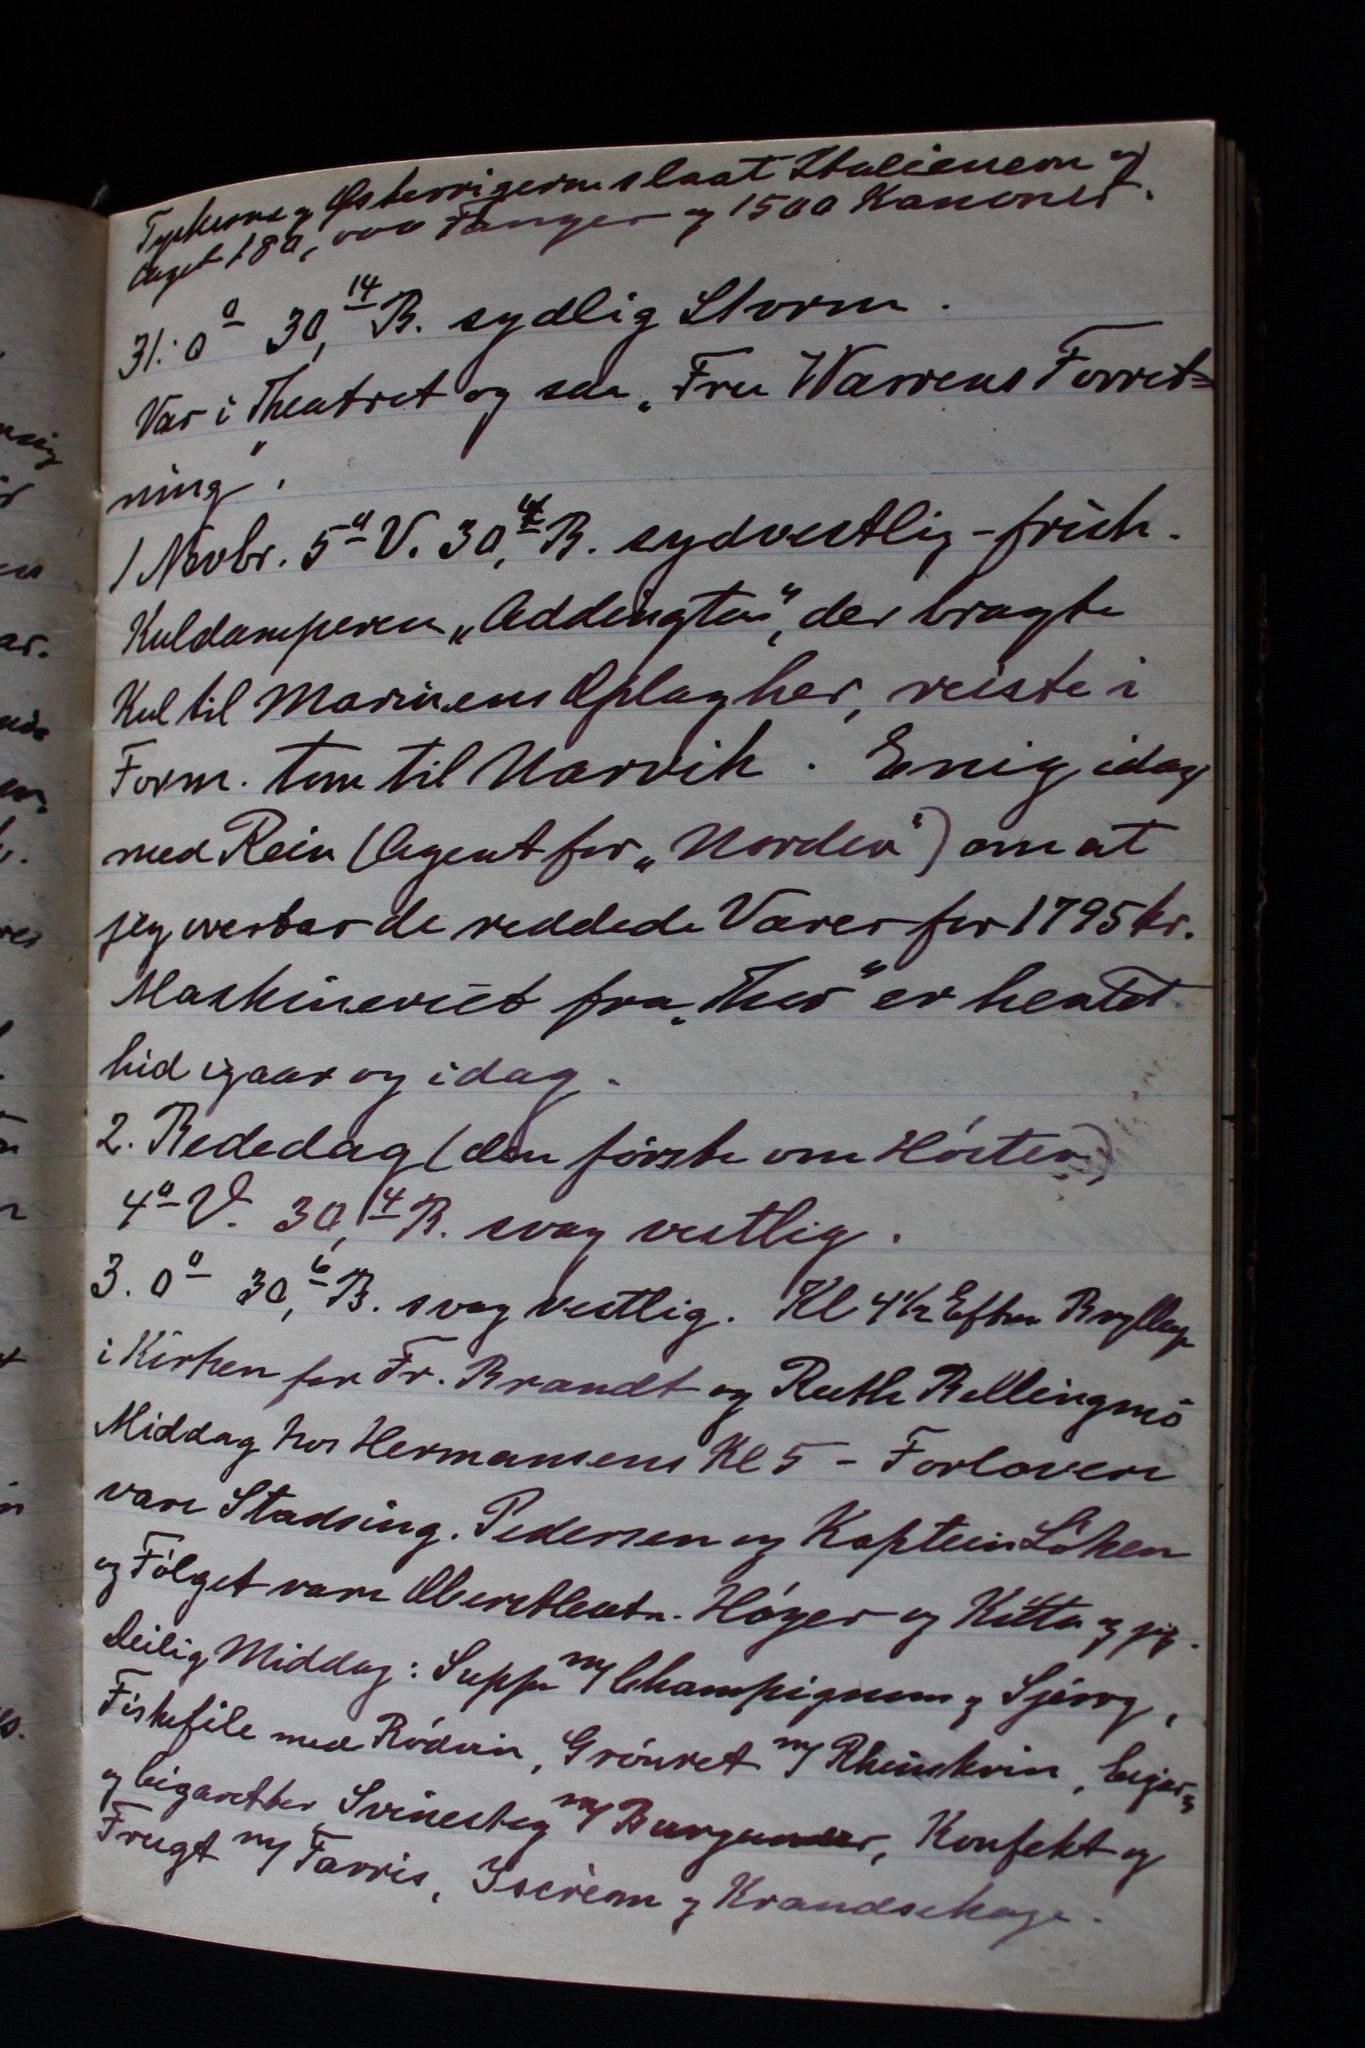 Tyskerne og Østerrigerne slaat Italienerne og
taget 180,000 Fanger og 1500 Kanoner.
31: 0° 30,14 B. sydlig Storm.
Var i Theatret og saa „Fru Warrens Forret=
ning".
1 Novbr. 5° V. 30, B. sydvestlig - frisk.
Kuldamperen „Addington", der bragte
Kul til Marinens Oplag her, reiste i
Form. tom til Narvik. Enig idag
med Rein (Agent for „Norden") om at
jeg overtar de reddede Varer for 1795 kr.
Maskineriet fra „Thor" er hentet
hid igaar og idag.
2. Bededag (den første om Høsten)
4° V. 30,14 B. svag vestlig.
3. 0° 30,6 B. svag vestlig. Kl 4½ Efterm Bryllup
i Kirken for Fr. Brandt og Ruth Bellingmo
Middag hos Hermansens Kl 5 - Forlovere
vare Stadsing. Pedersen og Kaptein Løken
og Følget vare Oberstleutn. Høyer og Kitta og jeg.
Deilig Middag: Suppe m/ Champignons og Sherry,
Fiskefile med Rødvin, Grønret m/ Rhinskvin, Cigar=
og Cigaretter, Svinesteg m/ Burgunder, Konfekt og
Frugt m/ Farris, Iscrèm og Krandsekage.